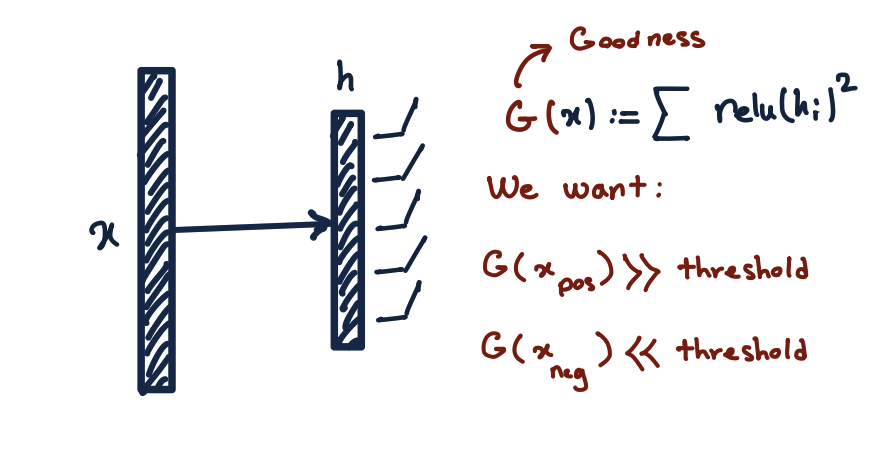 Goodness
h
G(x) := ∑ relu(hᵢ)²
We want:
x
G(x_pos) >> threshold
G(x_neg) << threshold